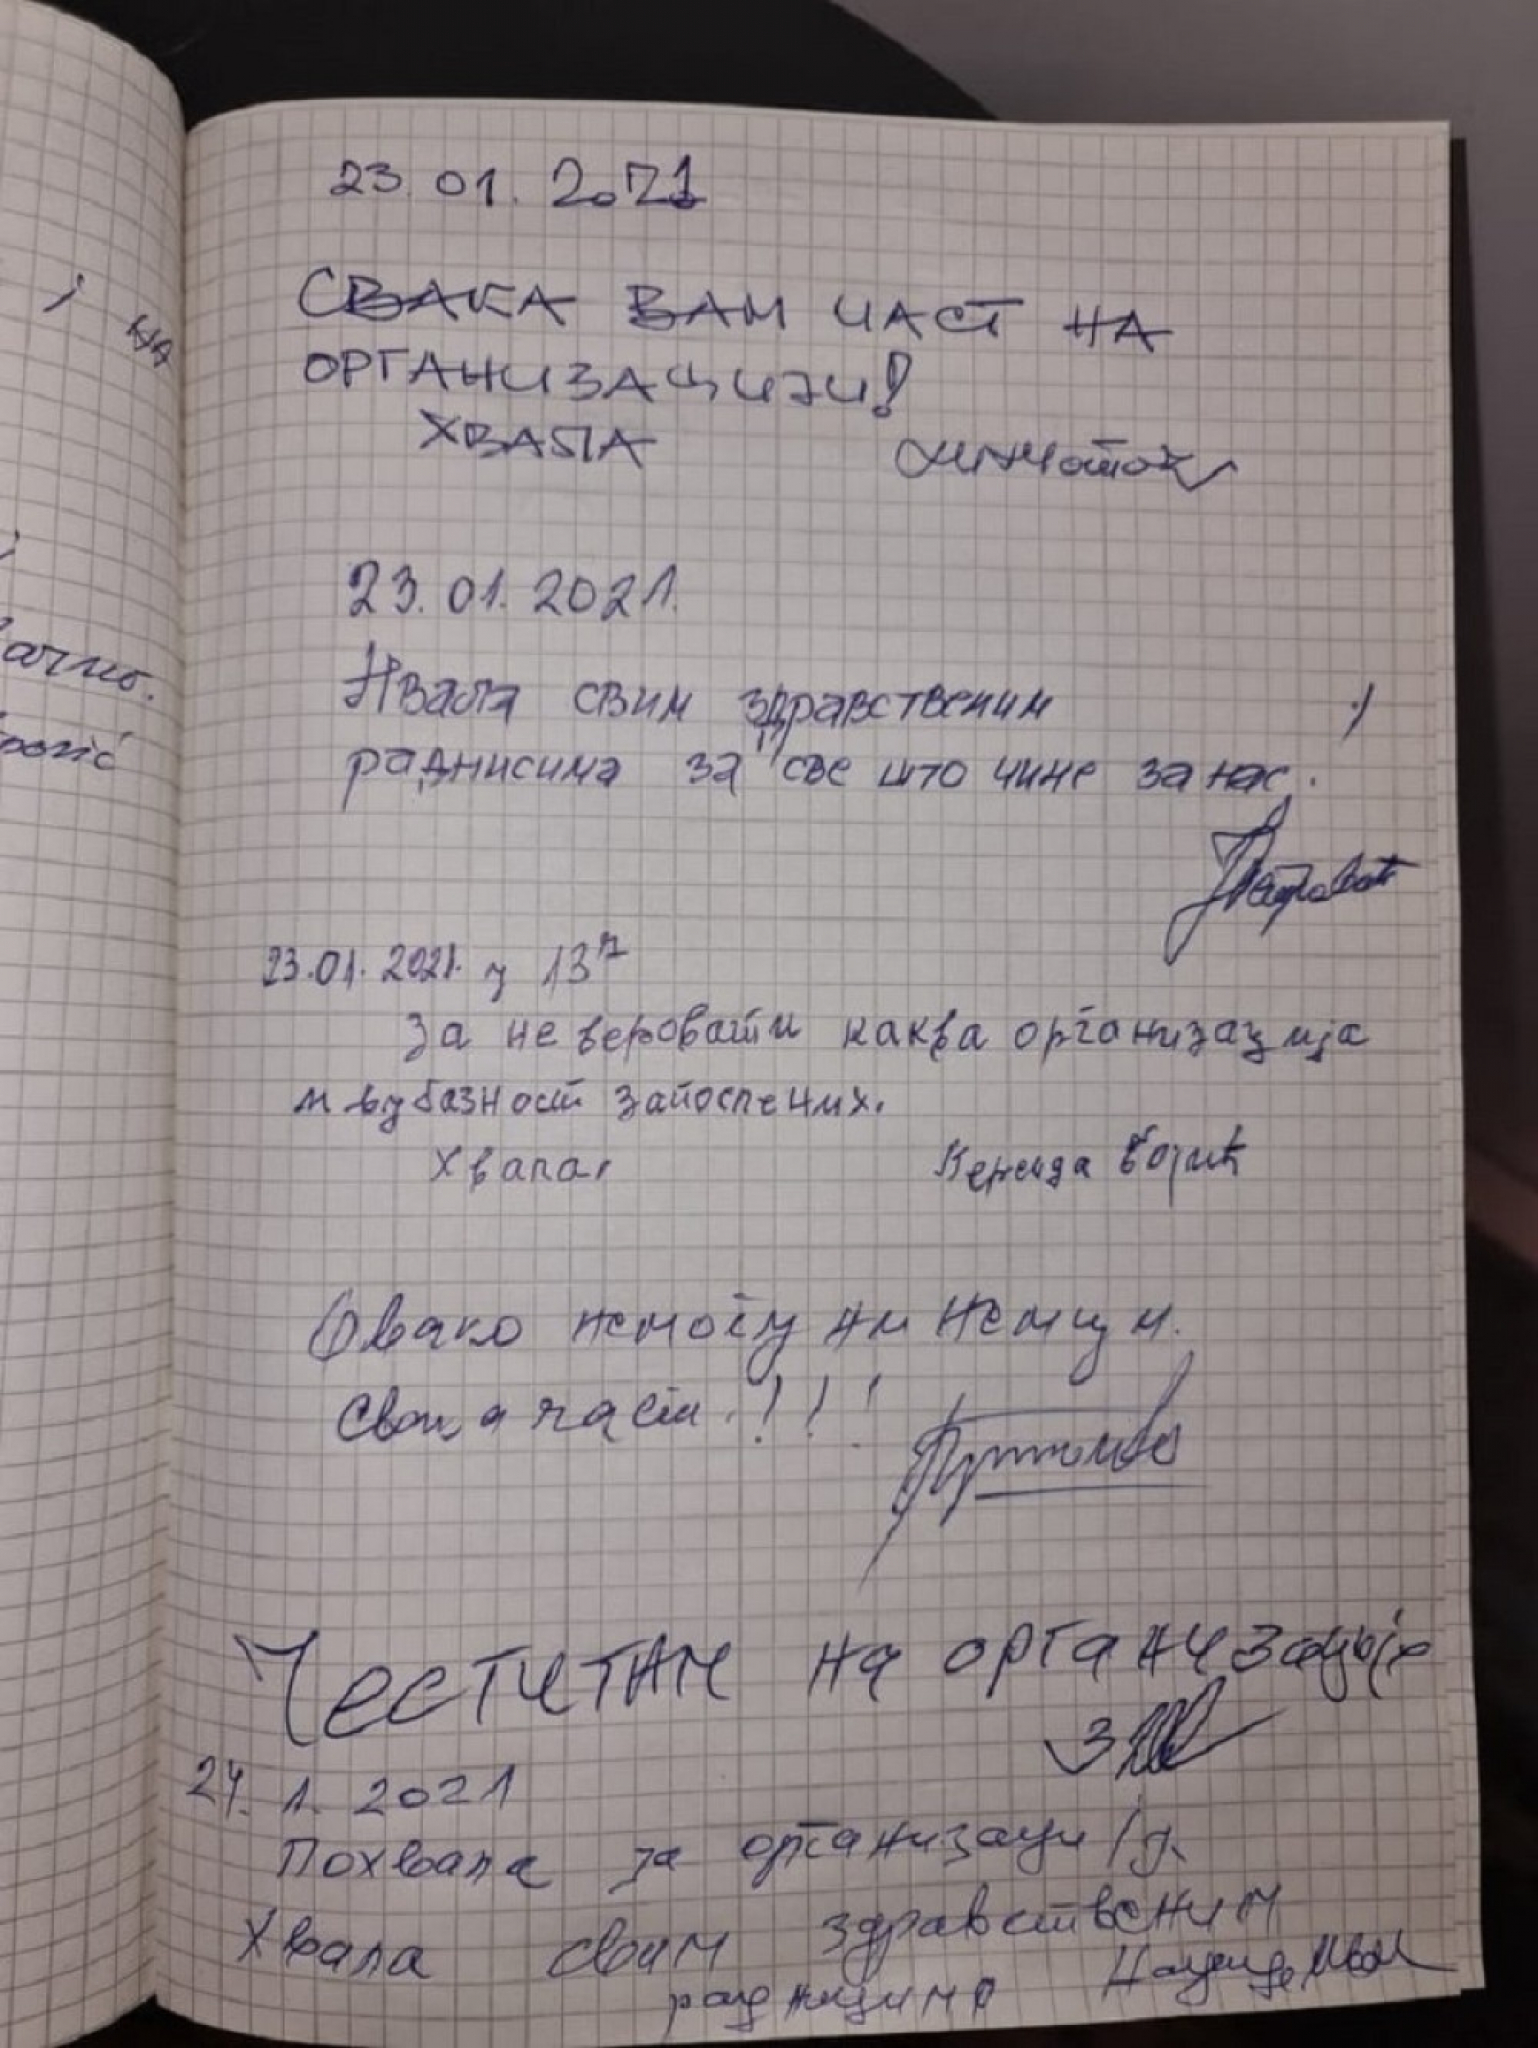 23.01.2021
СВАКА ВАМ ЧАСТ НА
ОРГАНИЗАЦИЈИ!
ХВАЛА
23.01.2021.
Хвала свим здравственим
раднисима за све што чине за нас.
23.01.2021. у 13
За не веровати каква организација
и љубазност запослених.
Хвала
Овако немогу ни Немци.
Свака част!!!
ЧЕСТИТАМ на организацији
24.1.2021
Похвала за организацију.
Хвала свим здравственим
радницима